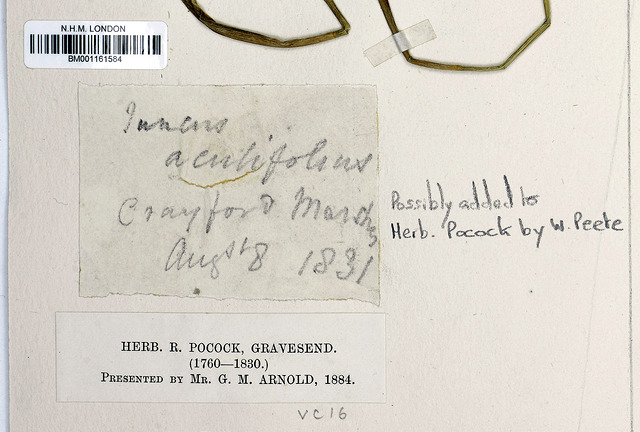 N.H.M. LONDON
BM001161584
Juncus
acutiflorus
Crayford Marshes
Augst 8 1831
Possibly added to
Herb. Pocock by W. Peete
HERB. R. POCOCK, GRAVESEND.
(1760—1830.)
PRESENTED BY MR. G. M. ARNOLD, 1884.
VC16